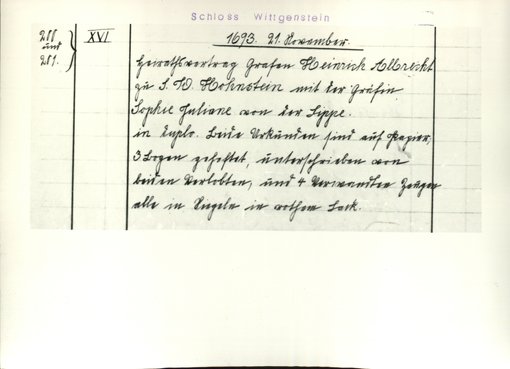 Schloss Wittgenstein
288 und 289. } XVI
1693. 21. November.
Heirathsvertrag Grafen Heinrich Albrecht
zu S. W. Hohnstein mit der Gräfin
Sophie Juliane von der Lippe.
in duplo. Beide Urkunden sind auf Papier,
3 Bogen geheftet, unterschrieben von
beiden Verlobten, und 4 Verwandten Zeugen
alle in Siegeln in rothem Lack.